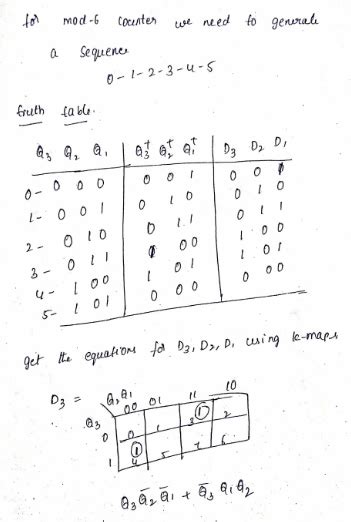 for mod-6 counter we need to generate
a sequence
0-1-2-3-4-5
truth table.
Q₃ Q₂ Q₁ | Q₃⁺ Q₂⁺ Q₁⁺ | D₃ D₂ D₁
0- 0 0 0 | 0 0 1 | 0 0 1
1- 0 0 1 | 0 1 0 | 0 1 0
2- 0 1 0 | 0 1 1 | 0 1 1
3- 0 1 1 | 1 0 0 | 1 0 0
4- 1 0 0 | 1 0 1 | 1 0 1
5- 1 0 1 | 0 0 0 | 0 0 0
get the equations for D₃, D₂, D₁ using k-maps
D₃ =
Q₂Q₁
Q₃ 00 01 11 10
0 0 1 3 1 2
1 1 4 5 7 6
Q₃Q̅₂Q̅₁ + Q̅₃Q₁Q₂